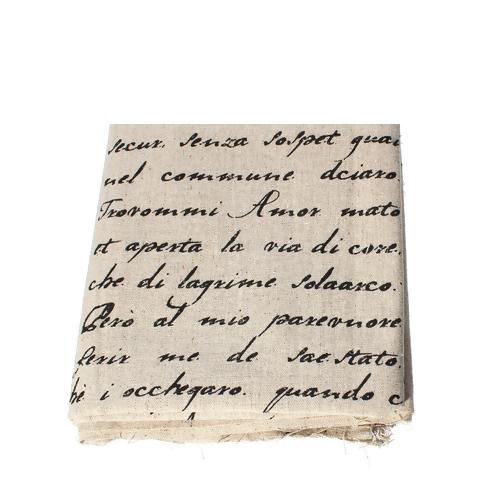 secur. senza sospet guai
nel commune dciaro.
Trovommi Amor mato
et aperta la via di core.
che di lagrime solaarco.
Però al mio parevnore.
ferir me de sae stato.
hè i occhegaro. quando c